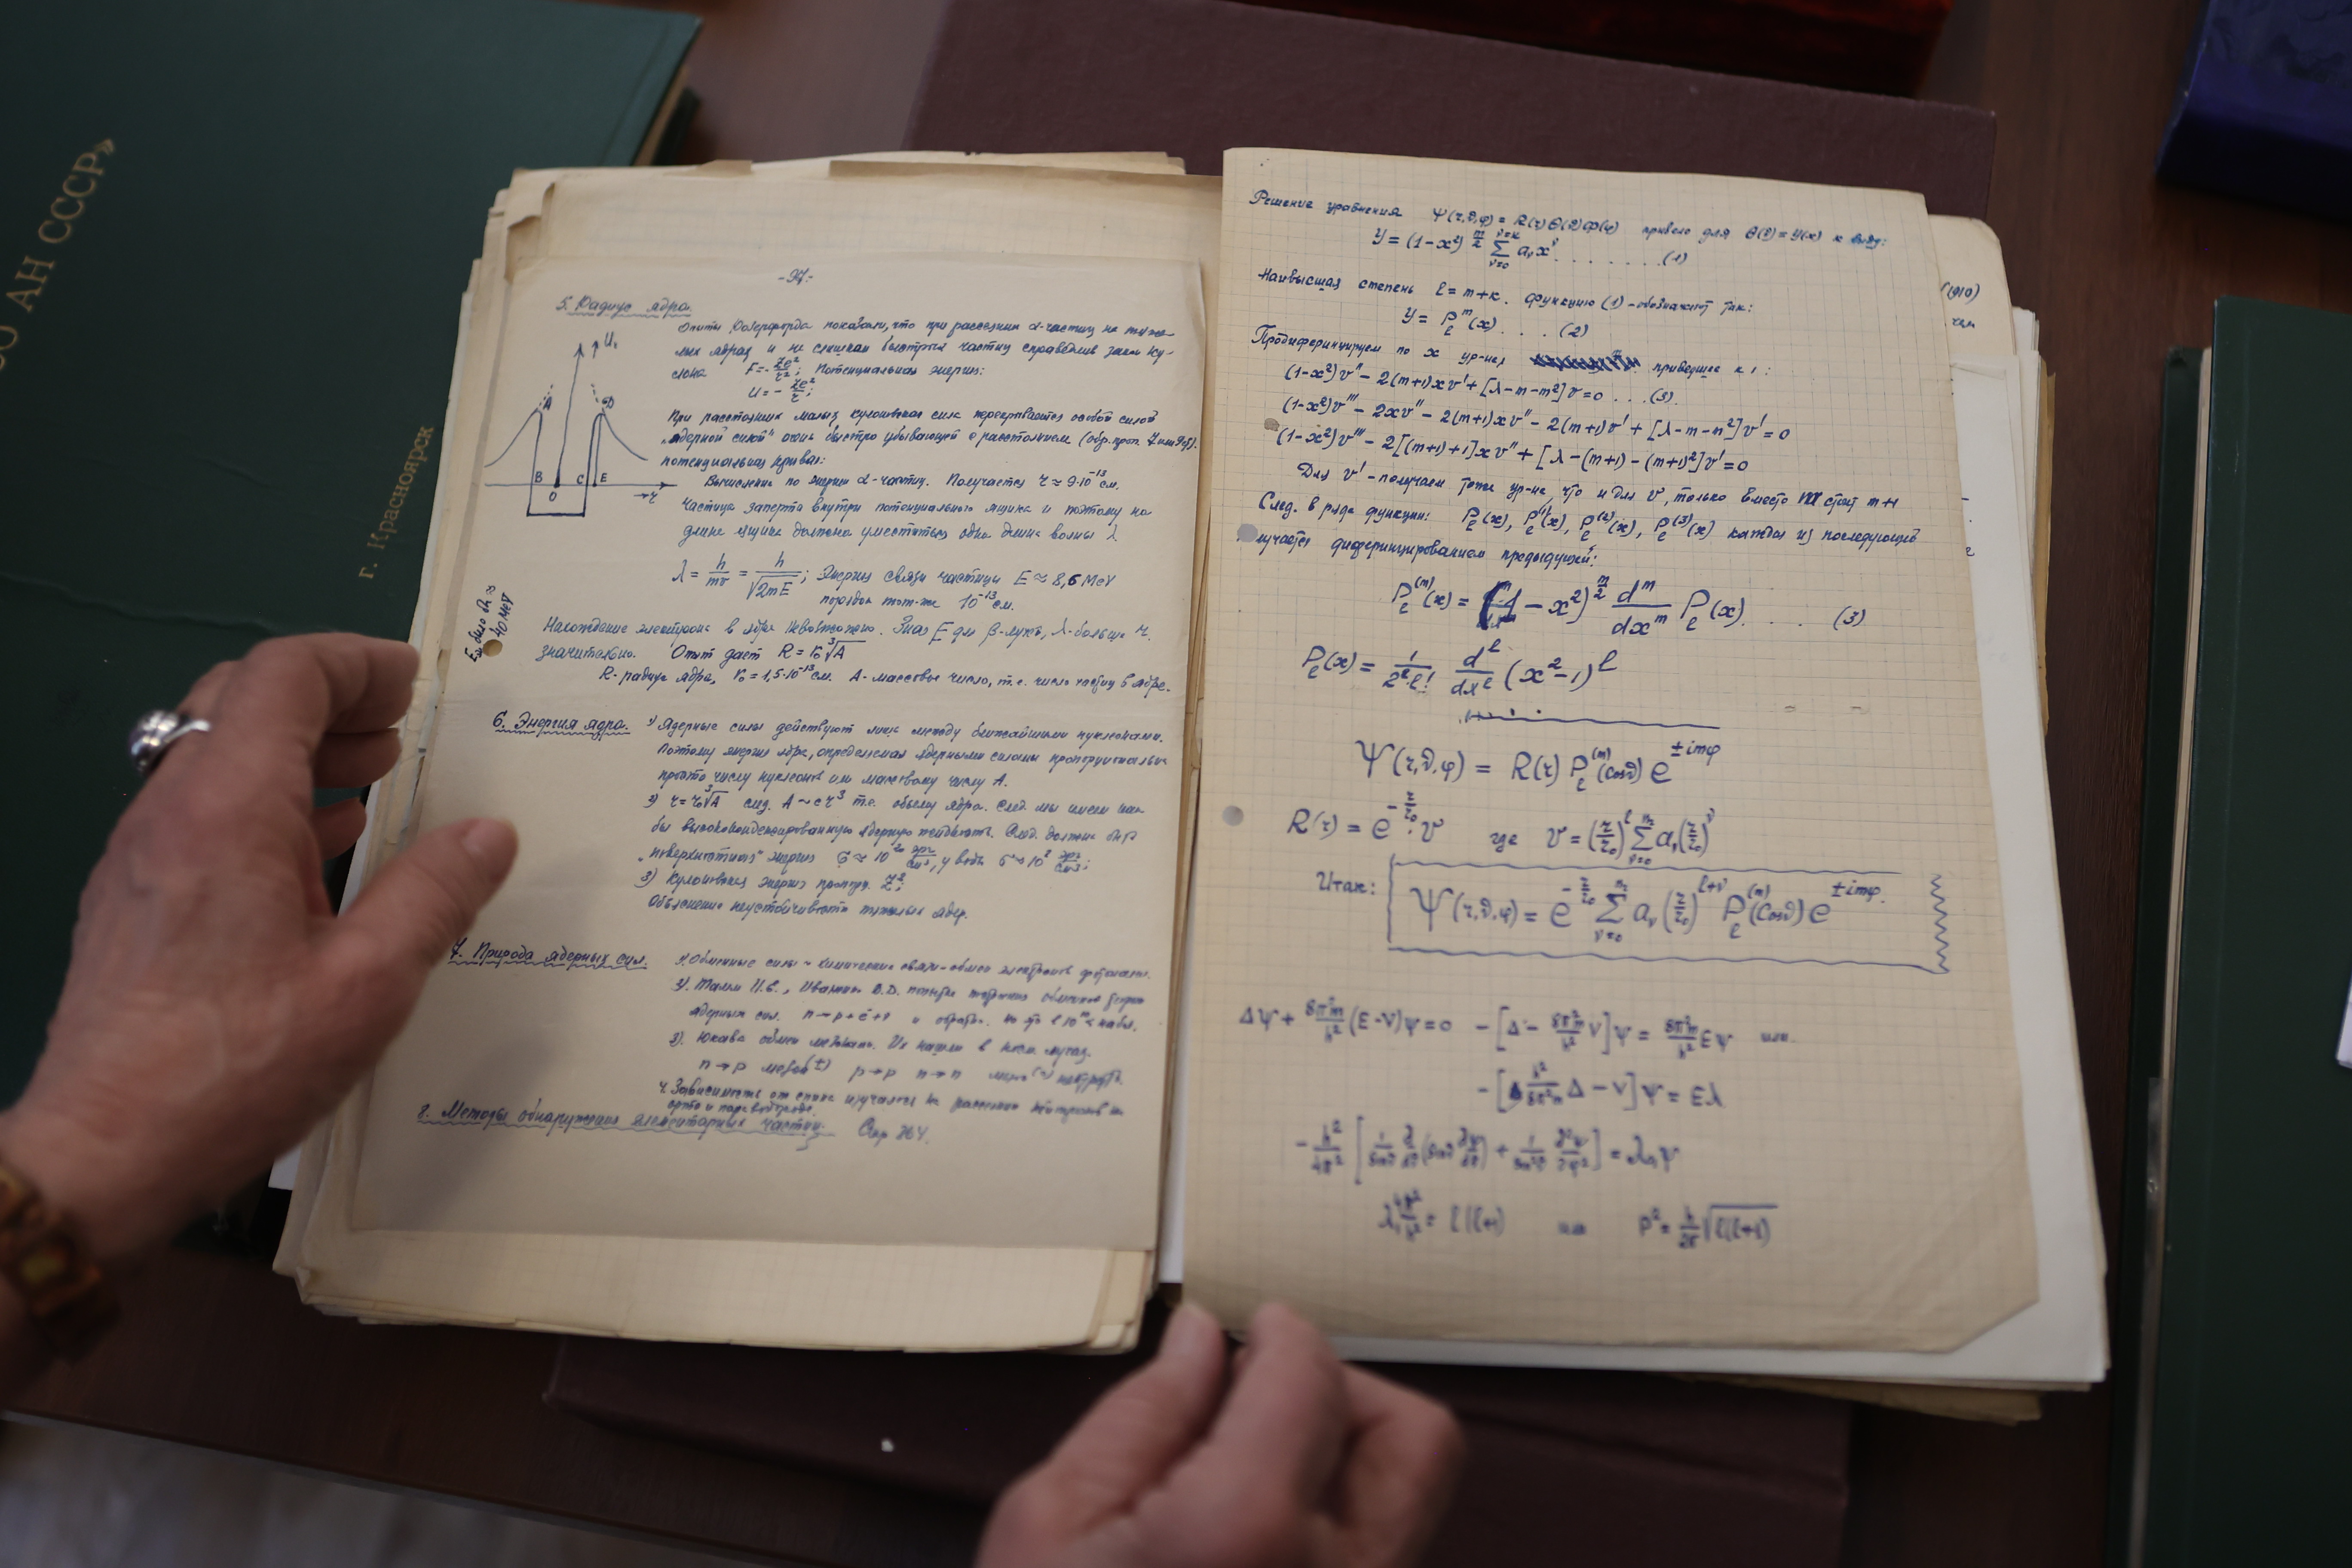 О АН СССР»
г. Красноярск
5. Радиус ядра.
Опыты Резерфорда показали, что при рассеянии α-частиц на тяже-
лых ядрах и не слишком быстрых частиц справедлив закон Ку-
лона F=-Ze²/r²; Потенциальная энергия:
U=-Ze²/r;
При расстояниях малых кулоновская сила перекрывается особой силой
„ядерной силой" очень быстро убывающей с расстоянием
потенциальная кривая:
Вычисления по энергии α-частиц. Получается r ≈ 9·10⁻¹³ см.
Частица заперта внутри потенциального ящика и поэтому на
длине ящика должна уместиться одна длина волны λ
λ = h/mv = h/√2mE; Энергия связи частицы E ≈ 8,6 MeV
порядок тот-же 10⁻¹³ см.
A
D
B
O
C
E
→r
40 MeV
Нахождение электрона в ядре невозможно. Зная E для β-лучей, λ-больше r.
значительно. Опыт дает R = r₀∛A
R-радиус ядра, r₀ = 1,5·10⁻¹³ см. A-массовое число, т.е. число частиц в ядре.
6. Энергия ядра.
1) Ядерные силы действуют лишь между ближайшими нуклонами.
Поэтому энергия ядра, определяемая ядерными силами пропорциональна
просто числу нуклонов или массовому числу A.
2) r=r₀∛A след. A~cr³ т.е. объему ядра. След. мы имеем как
бы высококонденсированную ядерную жидкость. След. должна быть
„поверхностная" энергия
3) Кулоновская энергия пропорц. Z²;
Объяснение неустойчивости тяжелых ядер.
7. Природа ядерных сил.
1) Обменные силы ~ химические связи-обмен электронов
2). Тамм И.Е., Иваненко Д.Д.
ядерных сил.
3). Юкава обмен мезонами. Их нашли в косм. лучах.
n→p p→p n→n
4. Зависимость от спина изучается на рассеянии нейтронов на
орто и пара водороде.
8. Методы обнаружения элементарных частиц. Стр 264.
Решение уравнения Ψ(r,ϑ,φ) = R(r)Θ(ϑ)Φ(φ) привело для Θ(ϑ)=y(x) к виду:
y = (1-x²)^{m/2} Σ_{ν=0}^{ν=k} aᵥx^ν . . . . . . . . (1)
Наивысшая степень l = m+k. Функцию (1)-обозначают так:
y = P_l^m(x). . . . (2)
Продиференцируем по x ур-ния приведшее к 1:
(1-x²)v'' - 2(m+1)xv' + [λ-m-m²]v = 0 . . . (3).
(1-x²)v''' - 2xv'' - 2(m+1)xv'' - 2(m+1)v' + [λ-m-m²]v' = 0
(1-x²)v''' - 2[(m+1)+1]xv'' + [λ-(m+1)-(m+1)²]v' = 0
Для v' -получаем тоже ур-ние, что и для v, только вместо m стоит m+1
След. в ряде функции: P_l(x), P_l^{(1)}(x), P_l^{(2)}(x), P_l^{(3)}(x) каждая из последующей
лучается диференцированием предыдущей:
P_l^{(m)}(x) = (1-x²)^{m/2} d^m/dx^m P_l(x). . . . (3)
P_l(x) = 1/(2^l·l!) d^l/dx^l (x²-1)^l
Ψ(r,ϑ,φ) = R(r) P_l^{(m)}(cosϑ) e^{±imφ}
R(r) = e^{-r/r₀}·v где v = (r/r₀)^l Σ_{ν=0}^{n_r} aᵥ(r/r₀)^ν
Итак: Ψ(r,ϑ,φ) = e^{-r/r₀} Σ_{ν=0}^{n_r} aᵥ(r/r₀)^{l+ν} P_l^{(m)}(cosϑ) e^{±imφ}.
Δψ + 8π²m/h² (E-V)ψ = 0 -[Δ - 8π²m/h² V]ψ = 8π²m/h² Eψ или